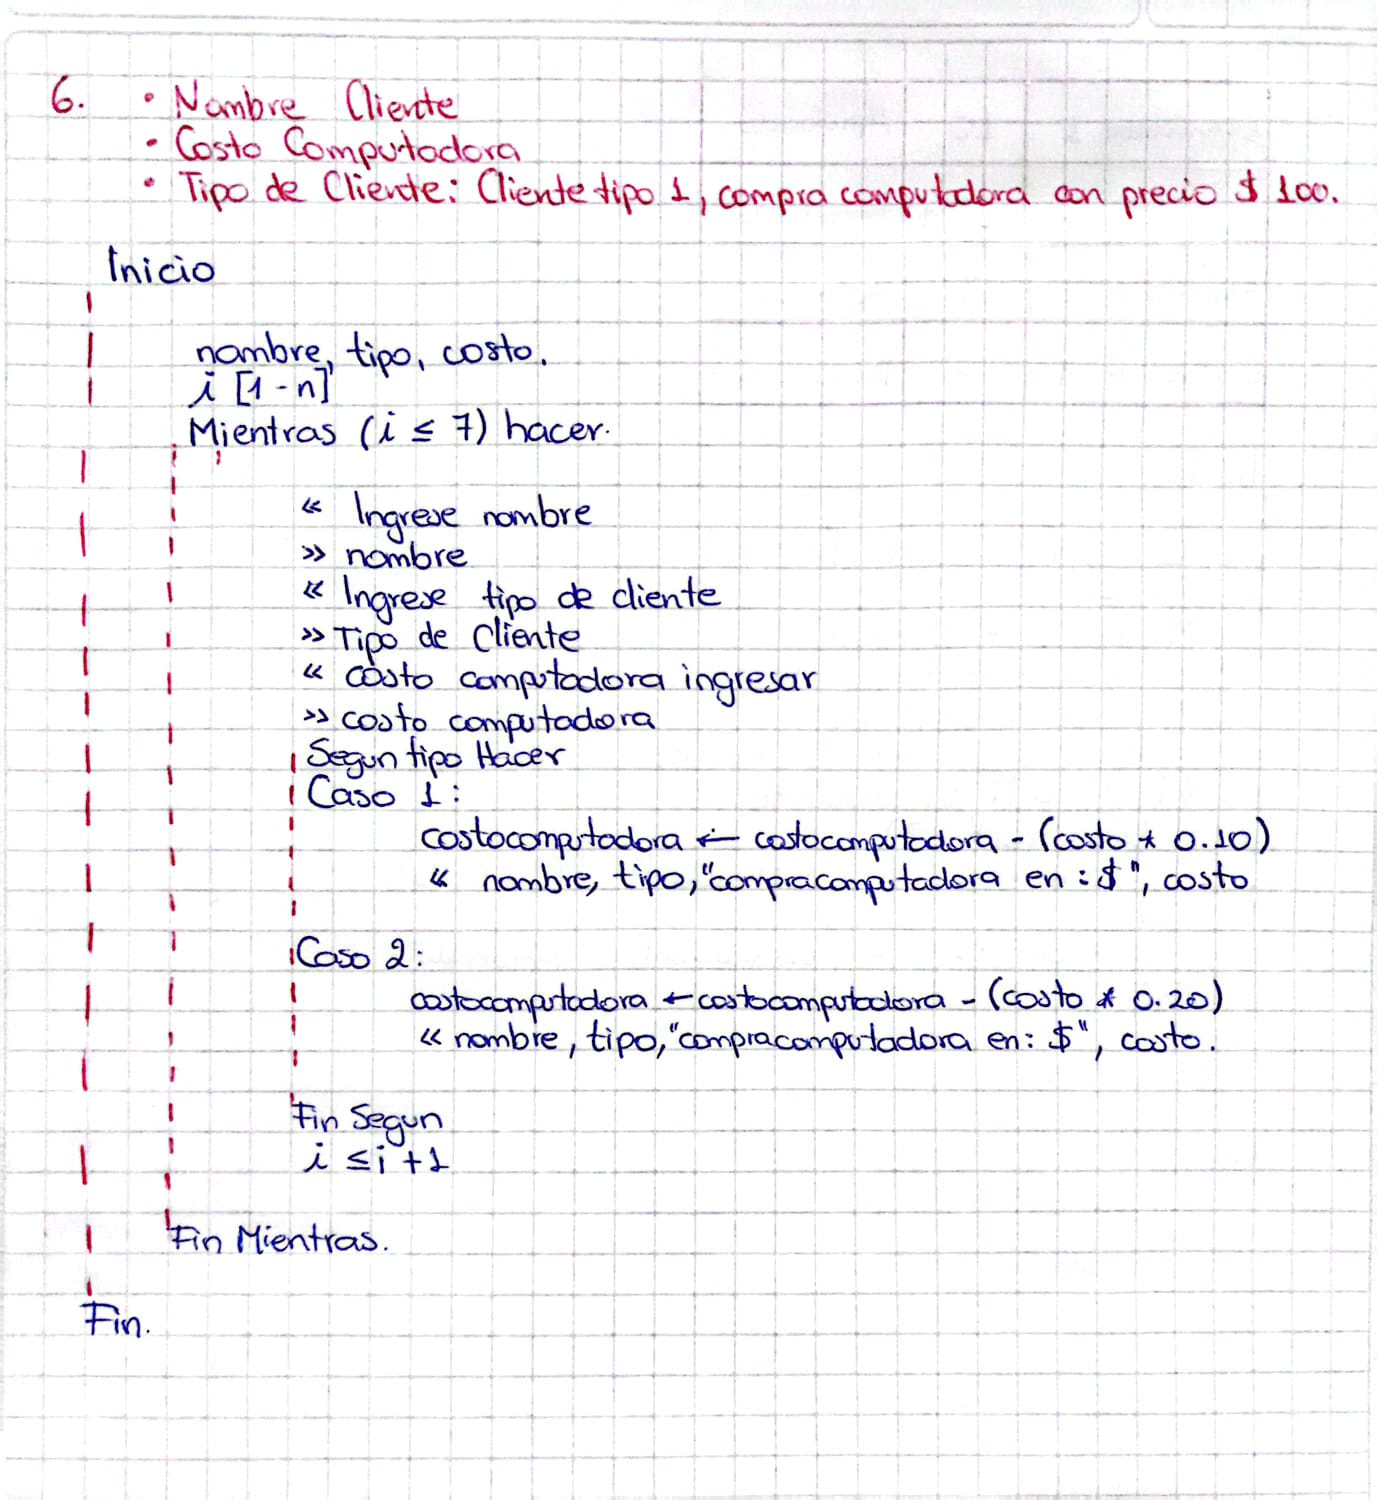 6. • Nombre Cliente
• Costo Computadora
• Tipo de Cliente: Cliente tipo 1, compra computadora con precio $ 100.
Inicio
nombre, tipo, costo.
i [1-n]
Mientras (i ≤ 7) hacer.
« Ingrese nombre
» nombre
« Ingrese tipo de cliente
» Tipo de Cliente
« costo computadora ingresar
» costo computadora
Segun tipo Hacer
Caso 1:
costocomputadora ← costocomputadora - (costo * 0.10)
« nombre, tipo, "compracomputadora en : $", costo
Caso 2:
costocomputadora ← costocomputadora - (costo * 0.20)
« nombre, tipo, "compracomputadora en: $", costo.
Fin Segun
i ≤ i + 1
Fin Mientras.
Fin.